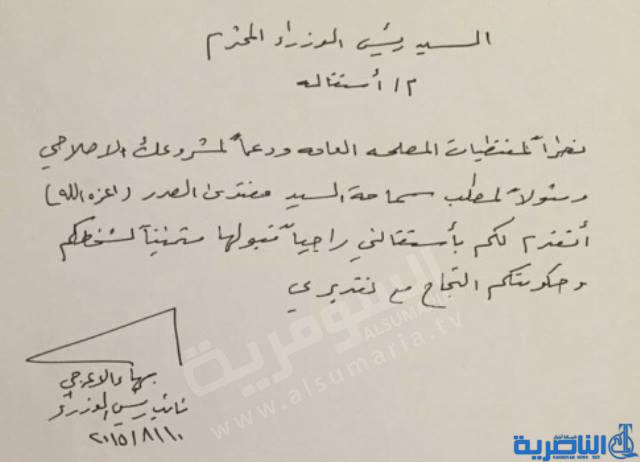 السيد رئيس الوزراء المحترم
م/ أستقاله
نظراً لمقتضيات المصلحه العامه ودعماً لمشروعك الاصلاحي
ونزولاً لمطلب سماحة السيد مقتدى الصدر (اعزه الله)
أتقدم لكم بأستقالتي راجياً قبولها متمنياً لشخصكم
وحكومتكم النجاح مع تقديري
بهاء الاعرجي
نائب رئيس الوزراء
٢٠١٥/٨/١٠
السومرية
ALSUMARIA
www.alsumaria.tv
الناصرية